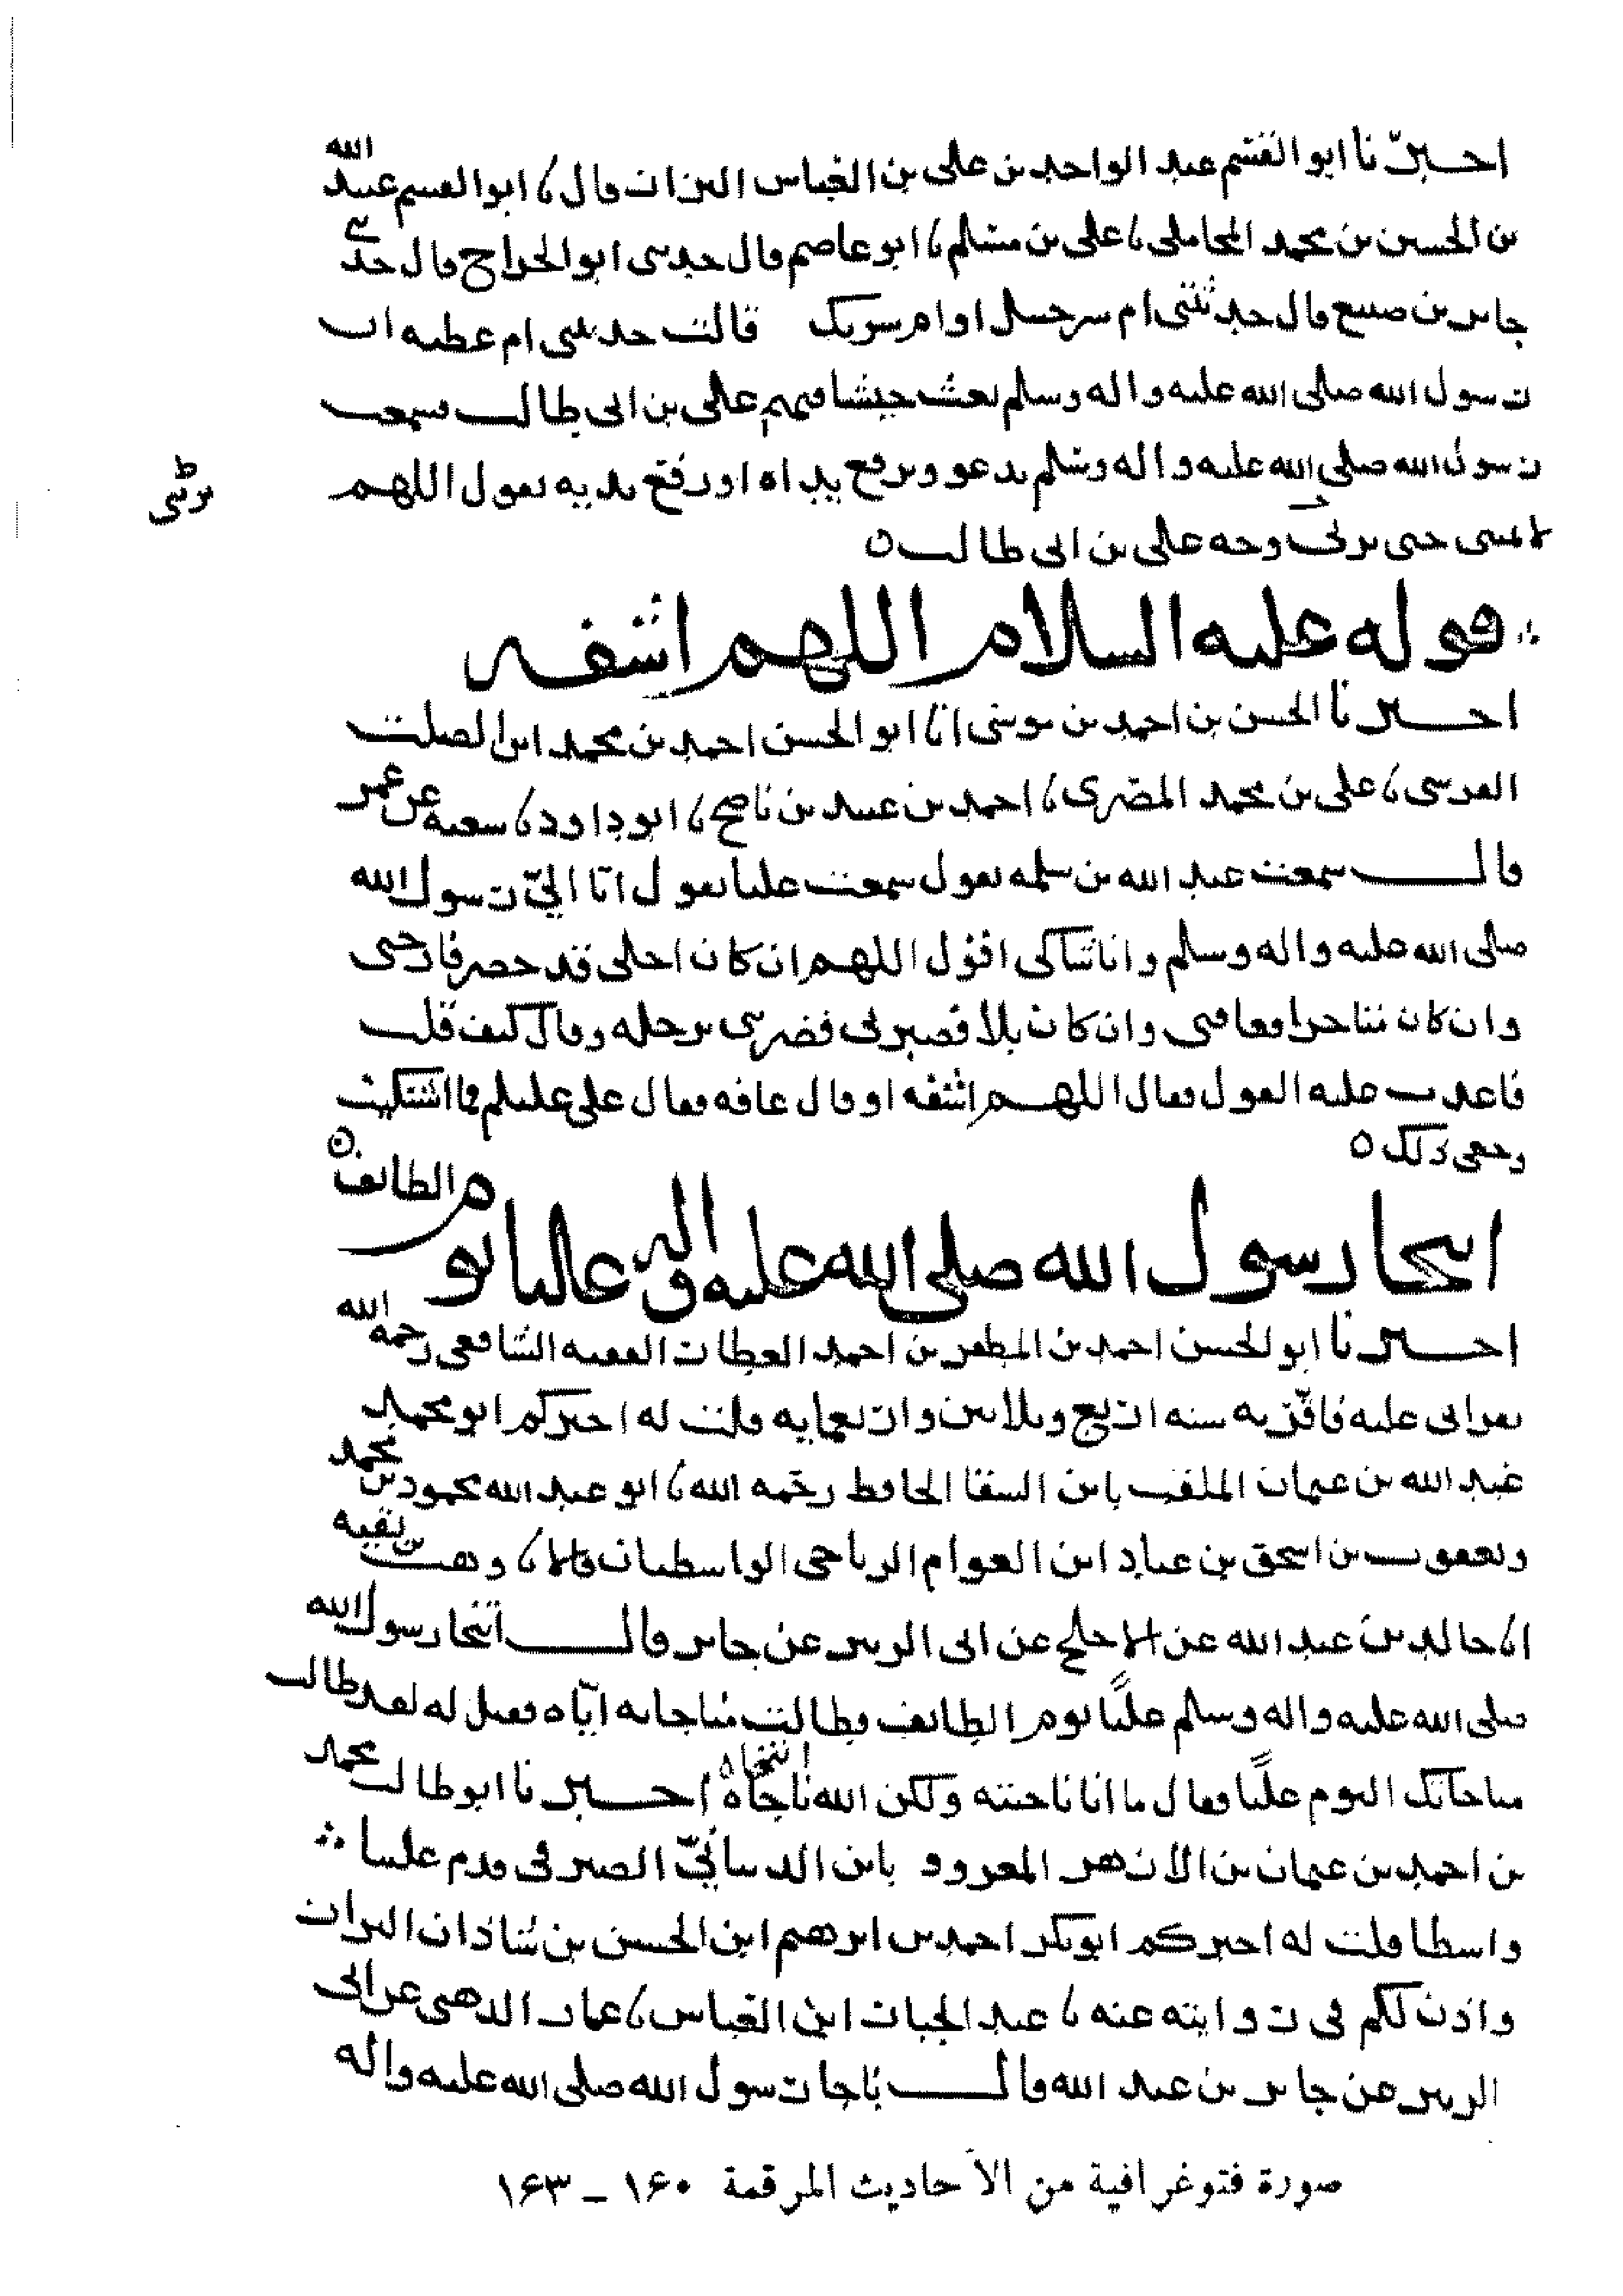 اخبرنا ابو القسم عبد الواحد بن علی بن العباس البزاز قال نا ابو القسم عبید الله
بن الحسین بن محمد المحاملی نا علی بن مسلم نا ابو عاصم قال حدثنی ابو الجراح قال حدثنی
جابر بن صبیح قال حدثتنی ام شرحبیل او ام شریک قالت حدثتنی ام عطیه ان
رسول الله صلی الله علیه واله وسلم بعث جیشا فیهم علی بن ابی طالب فسمعت
رسول الله صلی الله علیه واله وسلم یدعو ویرفع یداه او رفع یدیه یقول اللهم
لا تمتنی حتی ترینی وجه علی بن ابی طالب ٥
ترینی
قوله علیه السلام اللهم اشفه
اخبرنا الحسن بن احمد بن موسی انا ابو الحسن احمد بن محمد ابن الصلت
القرسی نا علی بن محمد المصری نا احمد بن عبید بن ناصح نا ابو داود نا شعبه عن عمر
قال سمعت عبد الله بن سلمه یقول سمعت علیا یقول اتا الیّ رسول الله
صلی الله علیه واله وسلم وانا شاکی اقول اللهم ان کان اجلی قد حضر فارحنی
وان کان متاخرا فعافنی وان کان بلا فصبرنی فضربنی برجله وقال کیف قلت
فاعدت علیه القول فقال اللهم اشفه او قال عافه فقال علی علیلم فما اشتکیت
وجعی ذلک ٥
انتجا رسول الله صلی الله علیه واله علیا یوم الطائف ٥
اخبرنا ابو الحسن احمد بن المظفر بن احمد العطار الفقیه الشافعی رحمه الله
بقراتی علیه فاقرّ به سنه اربع وثلاثین واربعمایه قلت له اخبرکم ابو محمد
عبد الله بن عثمان الملقب بابن السقا الحافظ رحمه الله نا ابو عبد الله محمود بن محمد
ویعقوب بن اسحق بن عباد ابن العوام الریاحی الواسطیان قالا نا وهب بن بقیه
انا خالد بن عبد الله عن الاجلح عن ابی الزبیر عن جابر قال انتجا رسول الله
صلی الله علیه واله وسلم علیًا یوم الطائف فطالت مناجاته ایّاه فقیل له لقد طالت
مناجاتک الیوم علیًا فقال ما انا ناجیته ولکن الله ناجاه انتجاه اخبرنا ابو طالب محمد
بن احمد بن عثمان بن الازهر المعروف بابن الدبثائیّ الصیرفی قدم علینا
واسطا قلت له اخبرکم ابو بکر احمد بن ابرهیم ابن الحسن بن شاذان البزاز
واذن لکم فی روایته عنه نا عبد الجبار ابن العباس نا عمار الدهنی عن ابی
الزبیر عن جابر بن عبد الله قال ناجا رسول الله صلی الله علیه واله
صورة فتوغرافیة من الاحادیث المرقمة ۱۶۰ – ۱۶۳